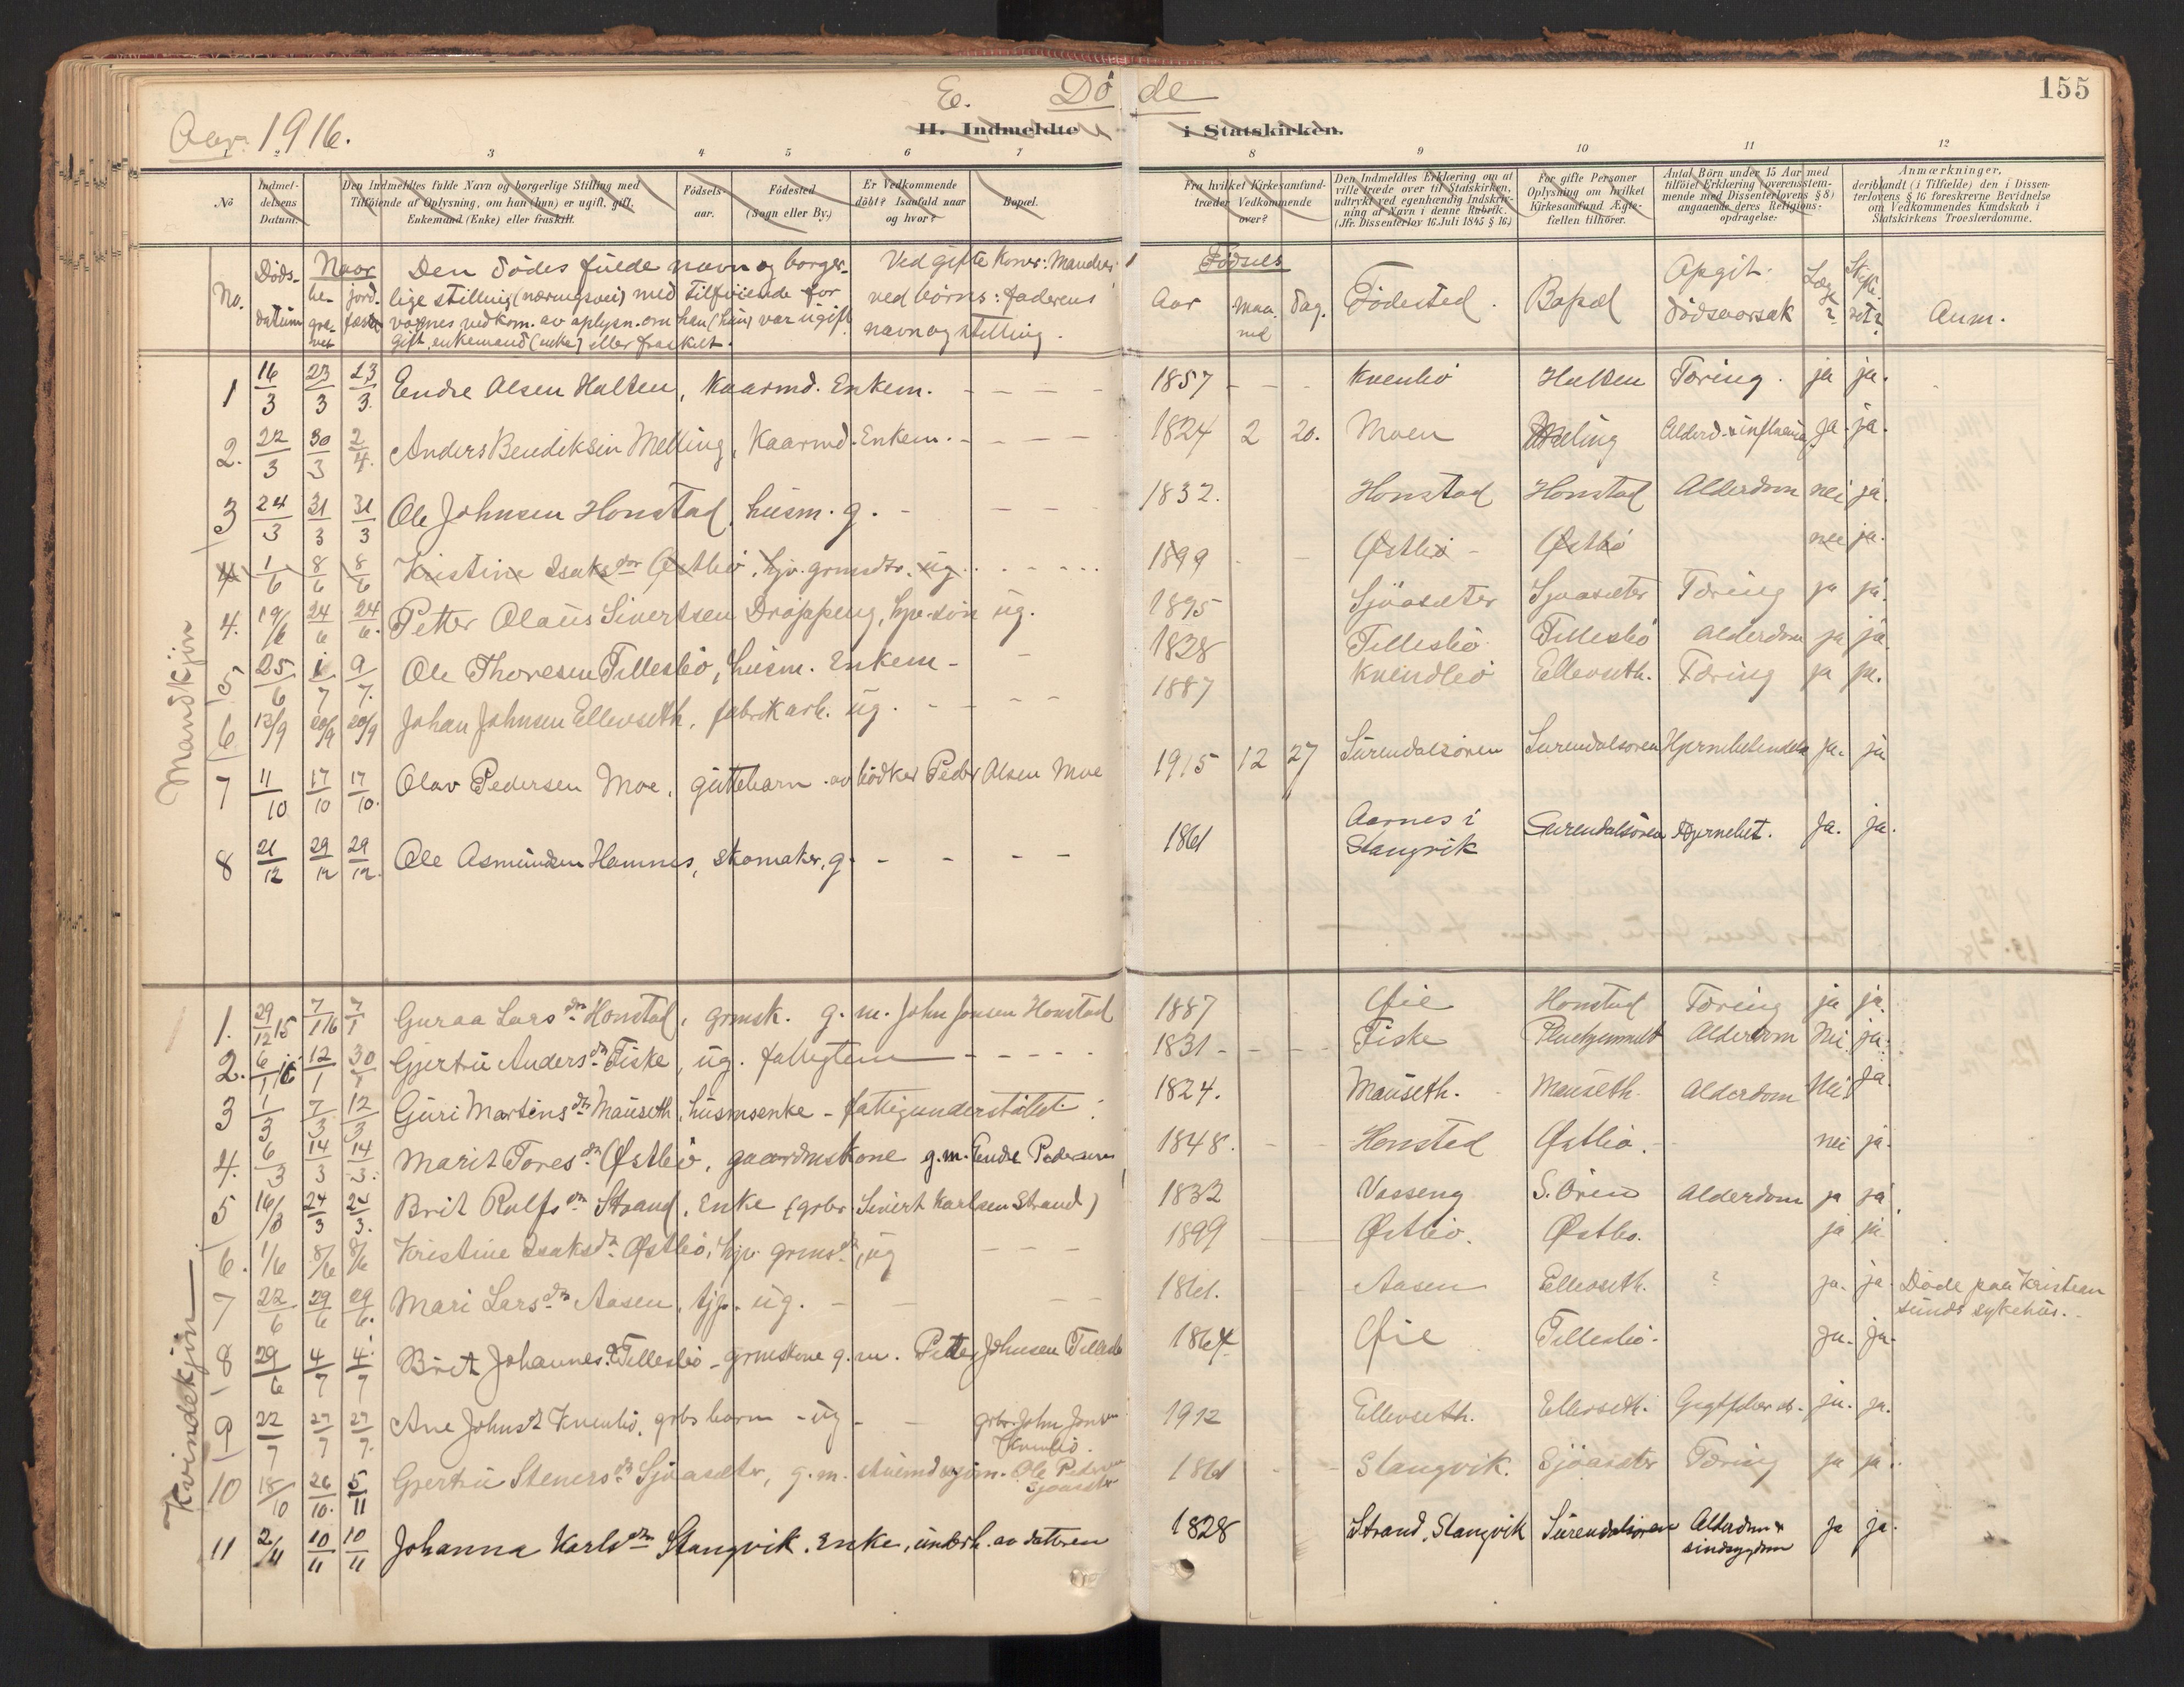 155
E. Dö de
Aar 1916.
II. Indmeldte i Statskirken.
3 4 5 6 7 8 9 10 11 12
No Indmeldelsens Datum. Den Indmeldtes fulde Navn og borgerlige Stilling med Tilföiende af Oplysning, om han (hun) er ugift, gift, Enkemand (Enke) eller fraskilt. Födsels-aar. Födested (Sogn eller By.) Er Vedkommende döbt? Isaafald naar og hvor? Bopæl. Fra hvilket Kirkesamfund træder Vedkommende over? Den Indmeldtes Erklæring om at ville træde over til Statskirken, udtrykt ved egenhændig Indskrivning af Navn i denne Rubrik. (Jfr. Dissenterlov 16 Juli 1845 § 16.) For gifte Personer Oplysning om hvilket Kirkesamfund Ægtefællen tilhörer. Antal Börn under 15 Aar med tilföiet Erklæring (overensstemmende med Dissenterlovens § 8) angaaende deres Religionsopdragelse. Anmærkninger, deriblandt (i Tilfælde) den i Dissenterlovens § 16 foreskrevne Bevidnelse om Vedkommendes Kundskab i Statskirkens Troeslærdomme.
No. Döds-datum Naar be-gravet jord-fæstet Den dödes fulde navn og borgerlige stilling (næringsvei) med tilföiende for voxnes vedkom. av oplysn. om han (hun) var ugift gift, enkemand (enke) eller fraskilt. Ved gifte koner: Mandens ved börns: faderens navn og stilling. Födsels Aar maaned dag. Födested. Bopæl Opgit. dödsaarsak Læge? Skifteret? Anm.
Mandkjön
1 16/3 23/3 23/3. Endre Olsen Halten, Kaarmd. Enkem. - - - - 1857 - - - Kvenbö Halten Tæring. ja ja.
2. 22/3 30/3 2/4. Anders Bendiksen Melling, Kaarmd. Enkem. - - - - 1824 2 20. Moen Mæling Alderd. & influenza Ja. ja.
3 24/3 31/3 31/3 Ole Johnsen Honstad, husm. g. - - - 1832. Honstad Honstad Alderdom nei ja.
4 1/6 8/6 8/6 Kristine Isaksdtr Østbö, hjv. grmsdtr. ug. - - - 1899 - - Østbö - Østbö nei ja.
4. 19/6 24/6 24/6. Petter Olaus Sivertsen Dröppeng, hpr. sön ug. 1895 Sjöasæter Sjöasæter Tæring ja ja.
5 25/6 1/7 9/7. Ole Thoresen Tillesbö, husm. Enkem - - 1828 Tellesbö Tellesbö Alderdom ja ja.
6 13/9 20/9 20/9 Johan Johnsen Ellevseth, fabrikarb. ug. - - - 1887 Kvendbö Ellevseth. Tæring ja ja.
7 11/10 17/10 17/10. Olav Pedersen Moe, guttebarn av bödker Peder Olsen Moe 1915 12 27 Surendalsören Surendalsören Hjernebetendelse Ja. ja
8 21/12 29/12 29/12. Ole Asmundsen Hamnes, skomaker, g. - - - - 1861 Aarnes i Stangvik Surendalsören Hjernebet. Ja. ja.
Kvindekjön
1. 29/12 15 7/1 16 7/1 Guraa Larsdtr Honstad, grmsk. g. m. John Jonsen Honstad 1887 Øie Honstad Tæring ja ja.
2. 6/1 16 12/1 30/1 Gjertru Andersdtr Fiske, ug. fattiglem - - - - 1831 - - - Fiske Pleiehjemmet Alderdom Nei ja.
3 1/3 7/3 12/3 Guri Martinsdtr Mauseth, husmsenke - fattigunderstöttet. 1824. Mauseth. - Mauseth. Alderdom Nei Ja.
4. 6/3 14/3 14/3. Marit Toresdtr Østbö, gaardmskone g. m. Endre Pedersen 1848. - - Honstad Østbö. - nei ja.
5 16/3 24/3 24/3. Brit Rolfsdtr Strand, Enke (grbr Sivert Karlsen Strand) 1832 Vasseng S. Ören Alderdom ja ja.
6. 1/6 8/6 8/6 Kristine Isaksdtr Østbö, hjv. grmsdtr, ug - - - 1899 Østbö. Østbö. ja ja
7 22/6 29/6 29/6. Mari Larsdtr Aasen, tjp. ug. - - - - 1861. - Aasen Ellevseth. ? ja. ja Döde paa Kristiansunds sykehus.
8 29/6 4/7 4/7 Brit Johannesdtr Tellesbö - grmskone g. m. Petter Johnsen Tellesbö 1864 Øie Tellesbö. ja. ja.
9 22/7 27/7 27/7. Ane Johnsdtr Kvenbö, grbs barn - ug - - grbr. John Jonsen Kvenbö. 1912 Ellevseth. Ellevseth. Gigtfeber ja. ja.
10 18/10 26/10. 5/11 Gjertru Stenersdtr Sjöasæter, g. m. Ole Pedersen Sjöasæter 1861 - - Stangvik. Sjöasæter Tæring ja ja.
11 2/11 10/11 10/11 Johanna Karlsdtr Stangvik, Enke, underh. av datteren 1828 Strand, Stangvik Surendalsören Alderdom & sindsygdom Ja ja.